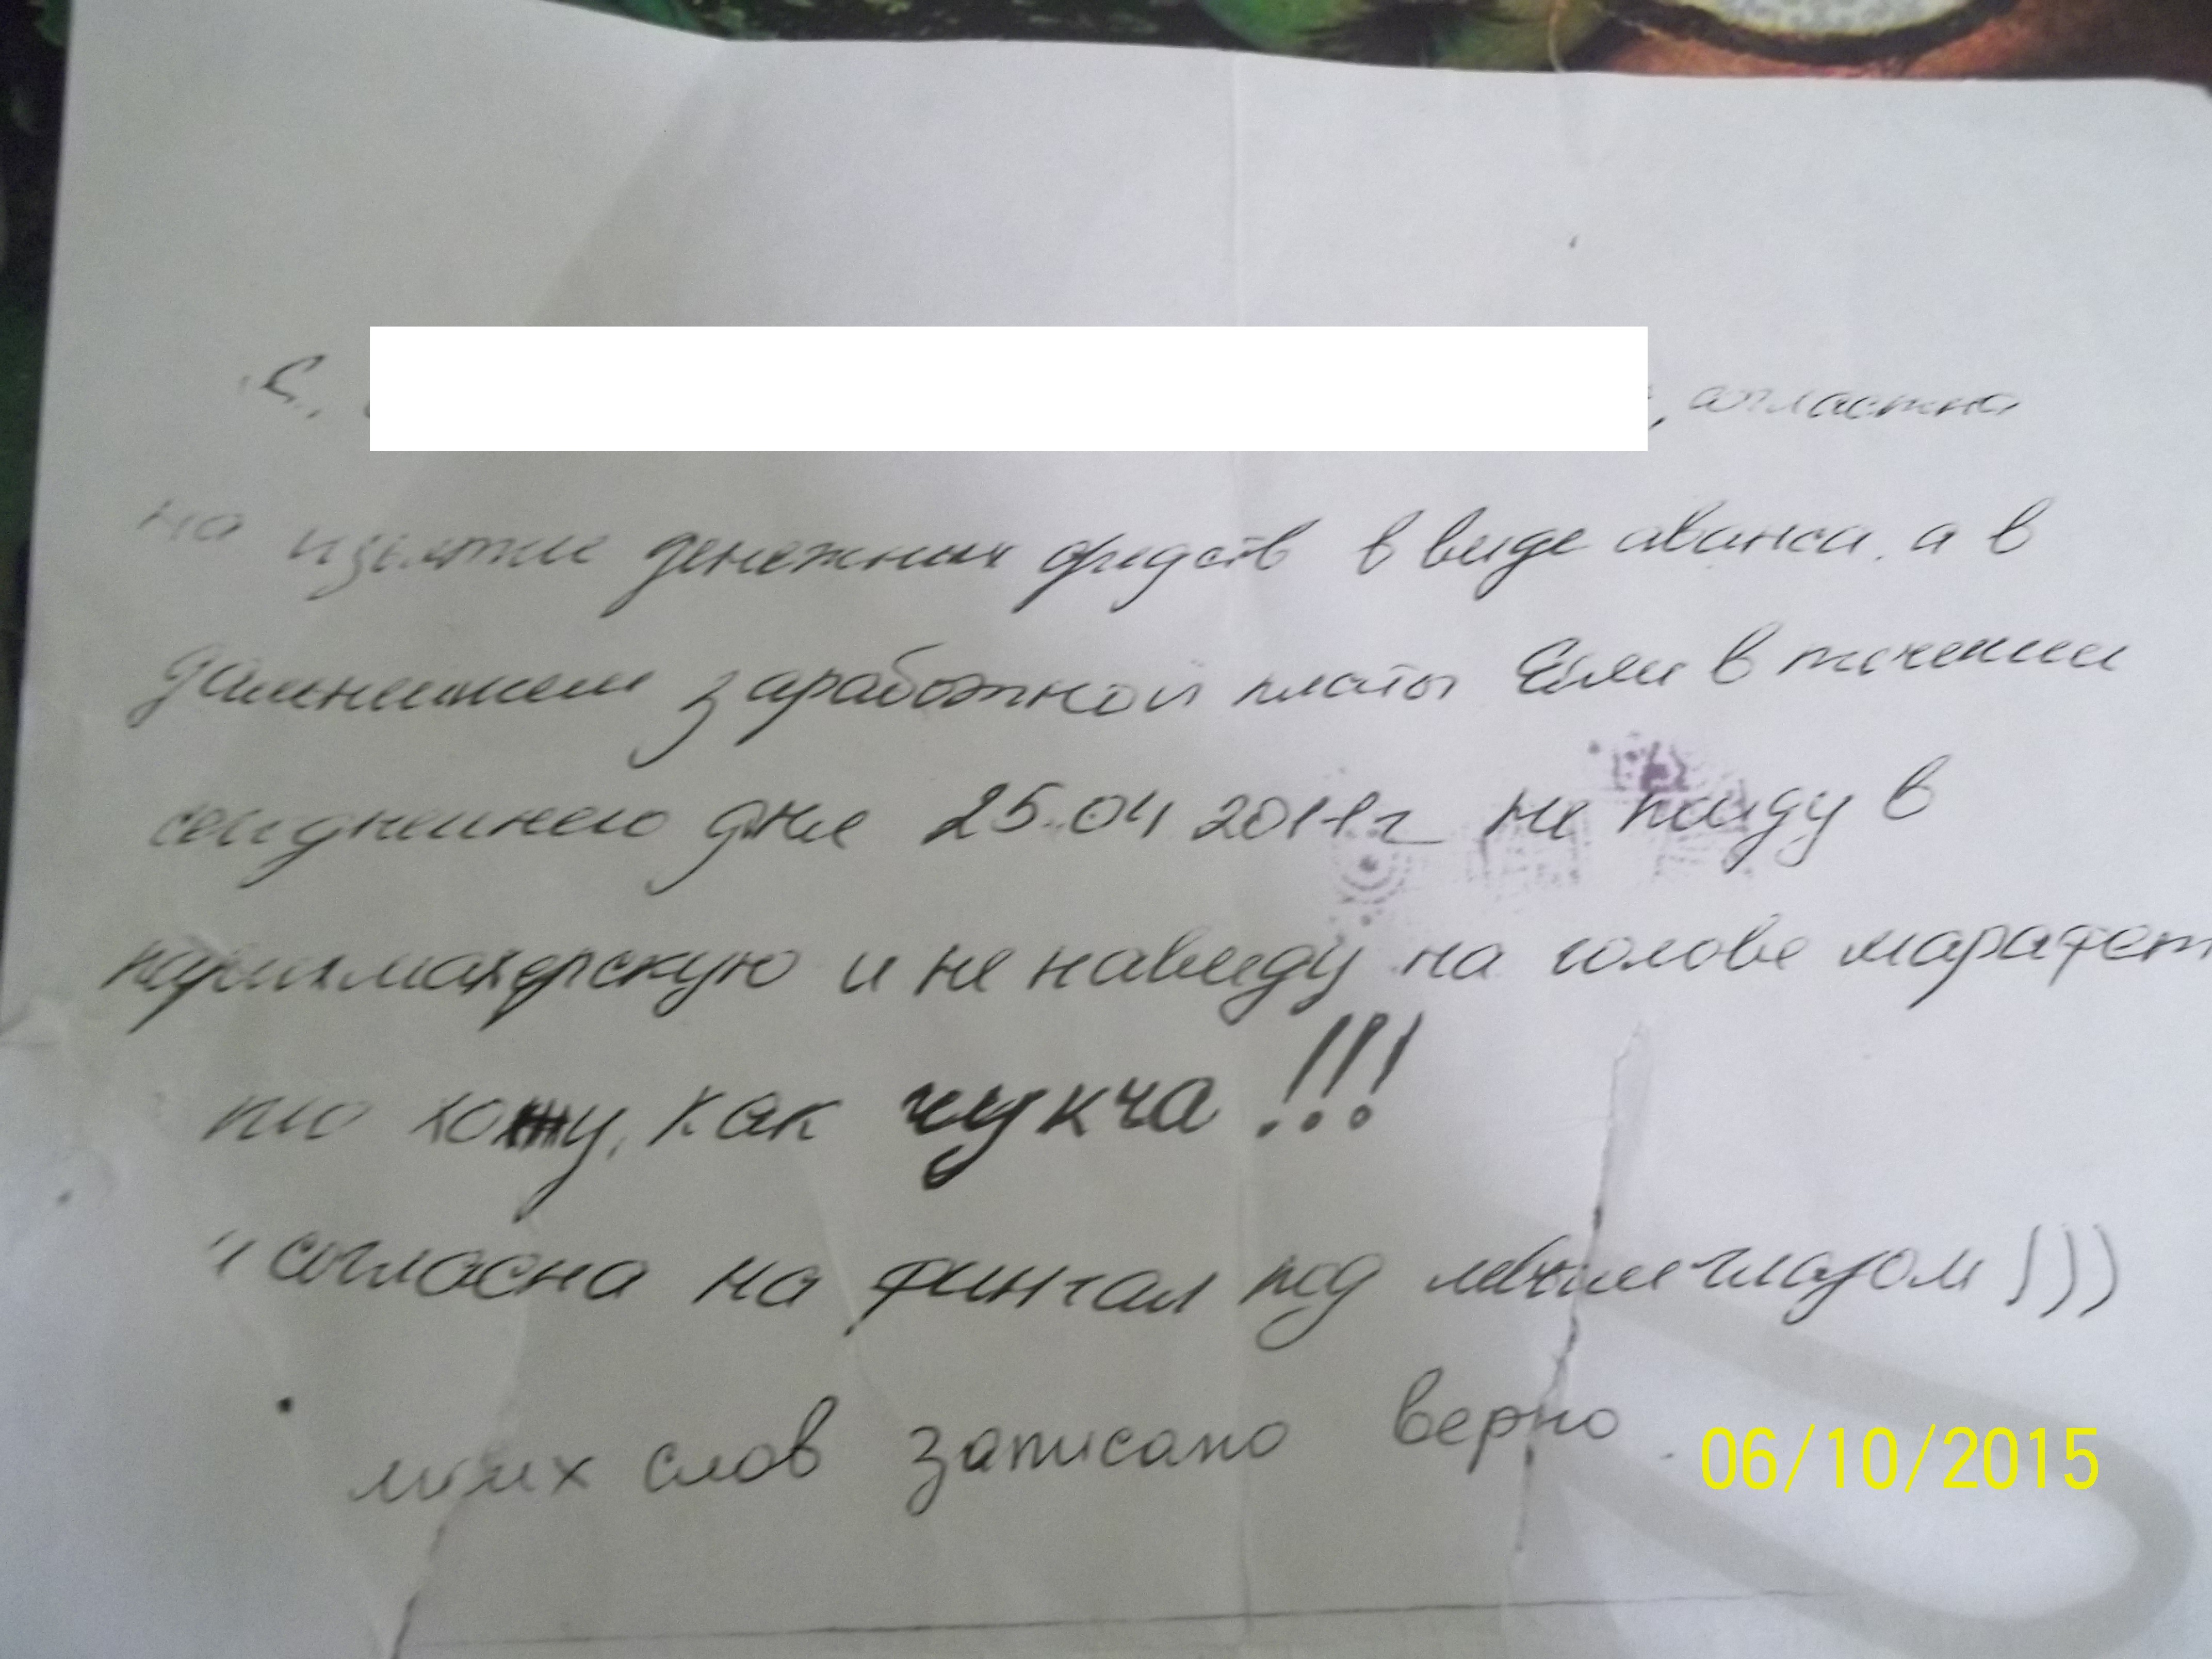 Я, , согластна
на изъятие денежных средств в виде аванса, а в
дальнейшем заработной платы Если в течении
сегдняшнего дня 25.04 2011г не пойду в
парикмахерскую и не наведу на голове марафет
ибо хожу, как чукча!!!
и согласна на фингал под левым глазом)))
моих слов записано верно.
06/10/2015